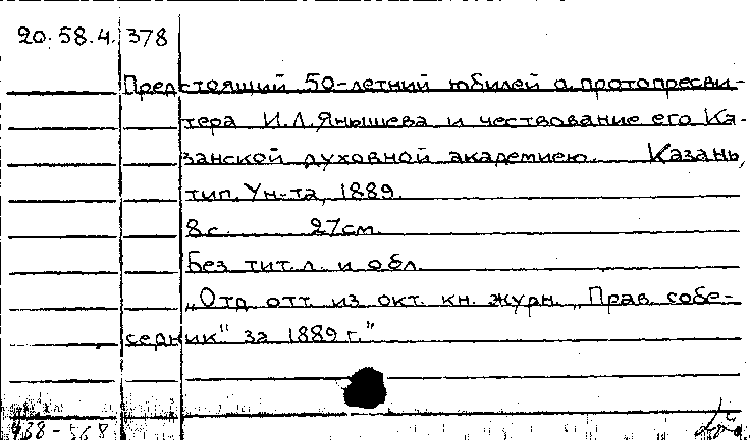 20.58.4. 378
Предстоящий 50-летний юбилей о. протопресви-
тера И.Л. Янышева и чествование его Ка-
занской духовной академиею. Казань,
тип. Ун-та, 1889.
8 с. 27 см.
Без тит. л. и обл.
„Отд. отт. из окт. кн. журн. „Прав. собе-
седник" за 1889 г."
938-568